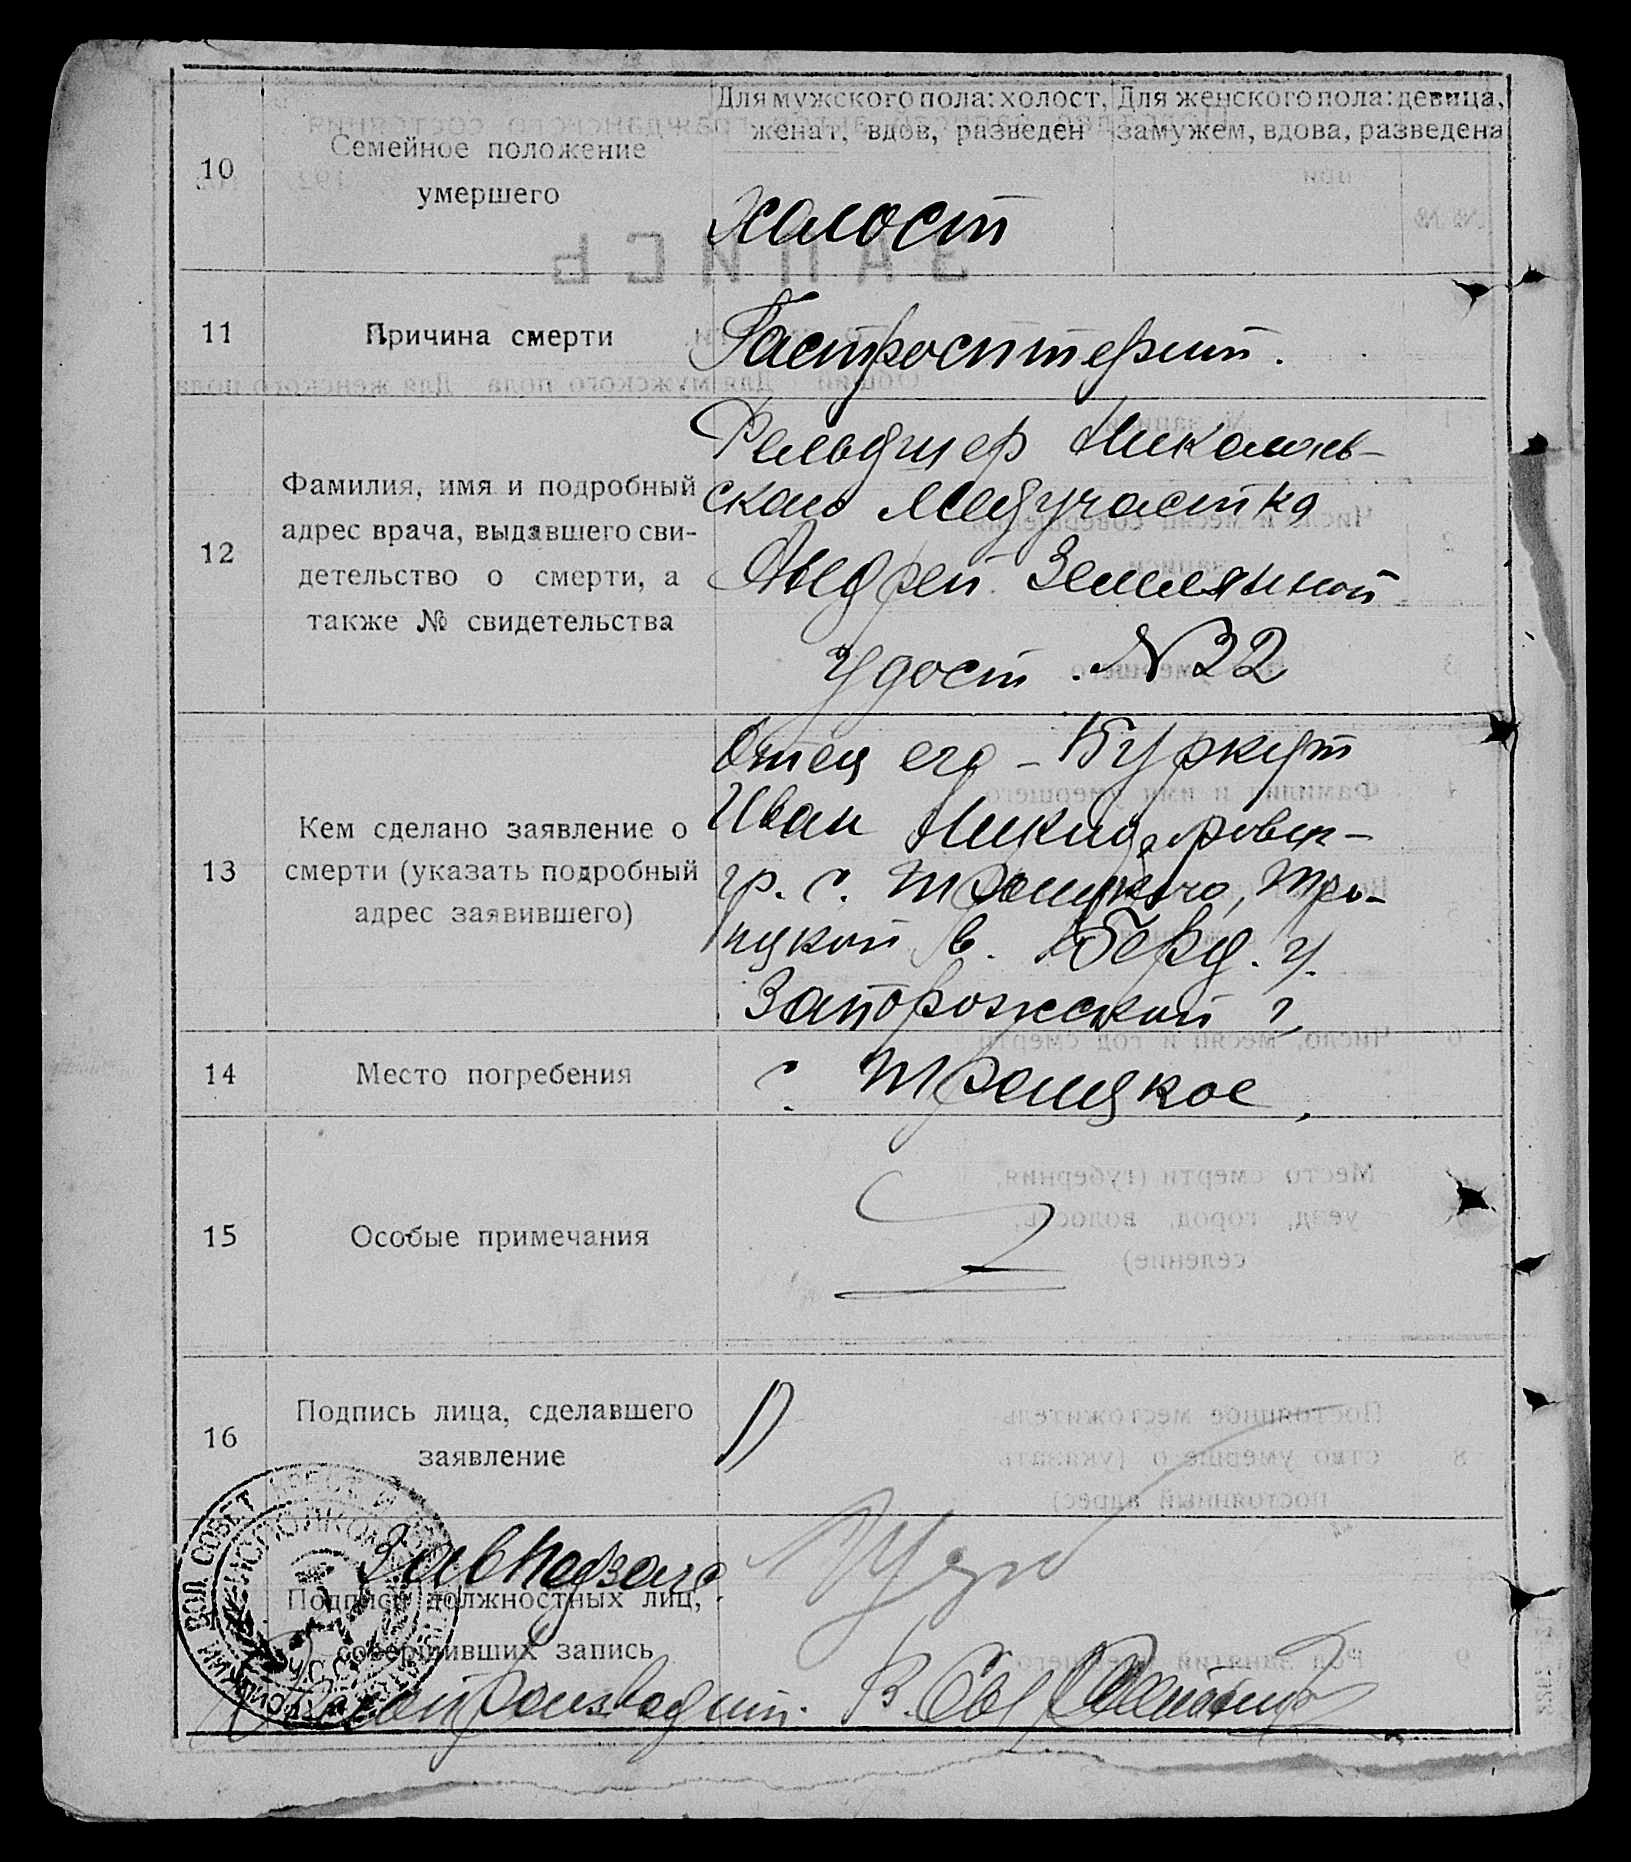 10
Семейное положение
умершего
Для мужского пола: холост,
женат, вдов, разведен
Для женского пола: девица,
замужем, вдова, разведена
Халост
11
Причина смерти
Гастроентерит.
12
Фамилия, имя и подробный
адрес врача, выдавшего сви-
детельство о смерти, а
также № свидетельства
Фельдшер Николаев-
ского Медучастка
Андрей Земляной
Удост. № 22
13
Кем сделано заявление о
смерти (указать подробный
адрес заявившего)
Отец его - Буркут
Иван
гр. с. Троицкого, Тро-
ицкой в. Берд. у.
Запорожской г.
14
Место погребения
с. Троицкое
15
Особые примечания
16
Подпись лица, сделавшего
заявление
Подписи должностных лиц,
совершивших запись
Завподзагс
Делопроизводит.